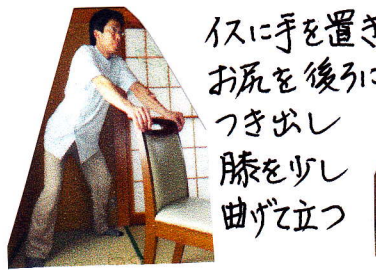 イスに手を置き
お尻を後ろに
つき出し
膝を少し
曲げて立つ